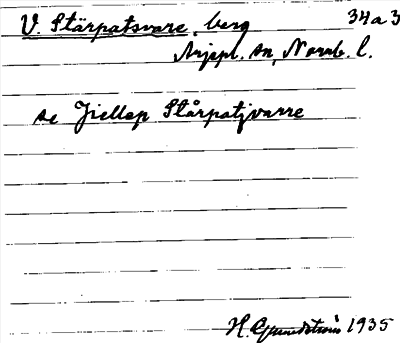 V. Stärpatsvare, berg 34a3
Arjepl. sn, Norrb. l.
se Jiellep Stårpatjvarre
H. Grundström 1935